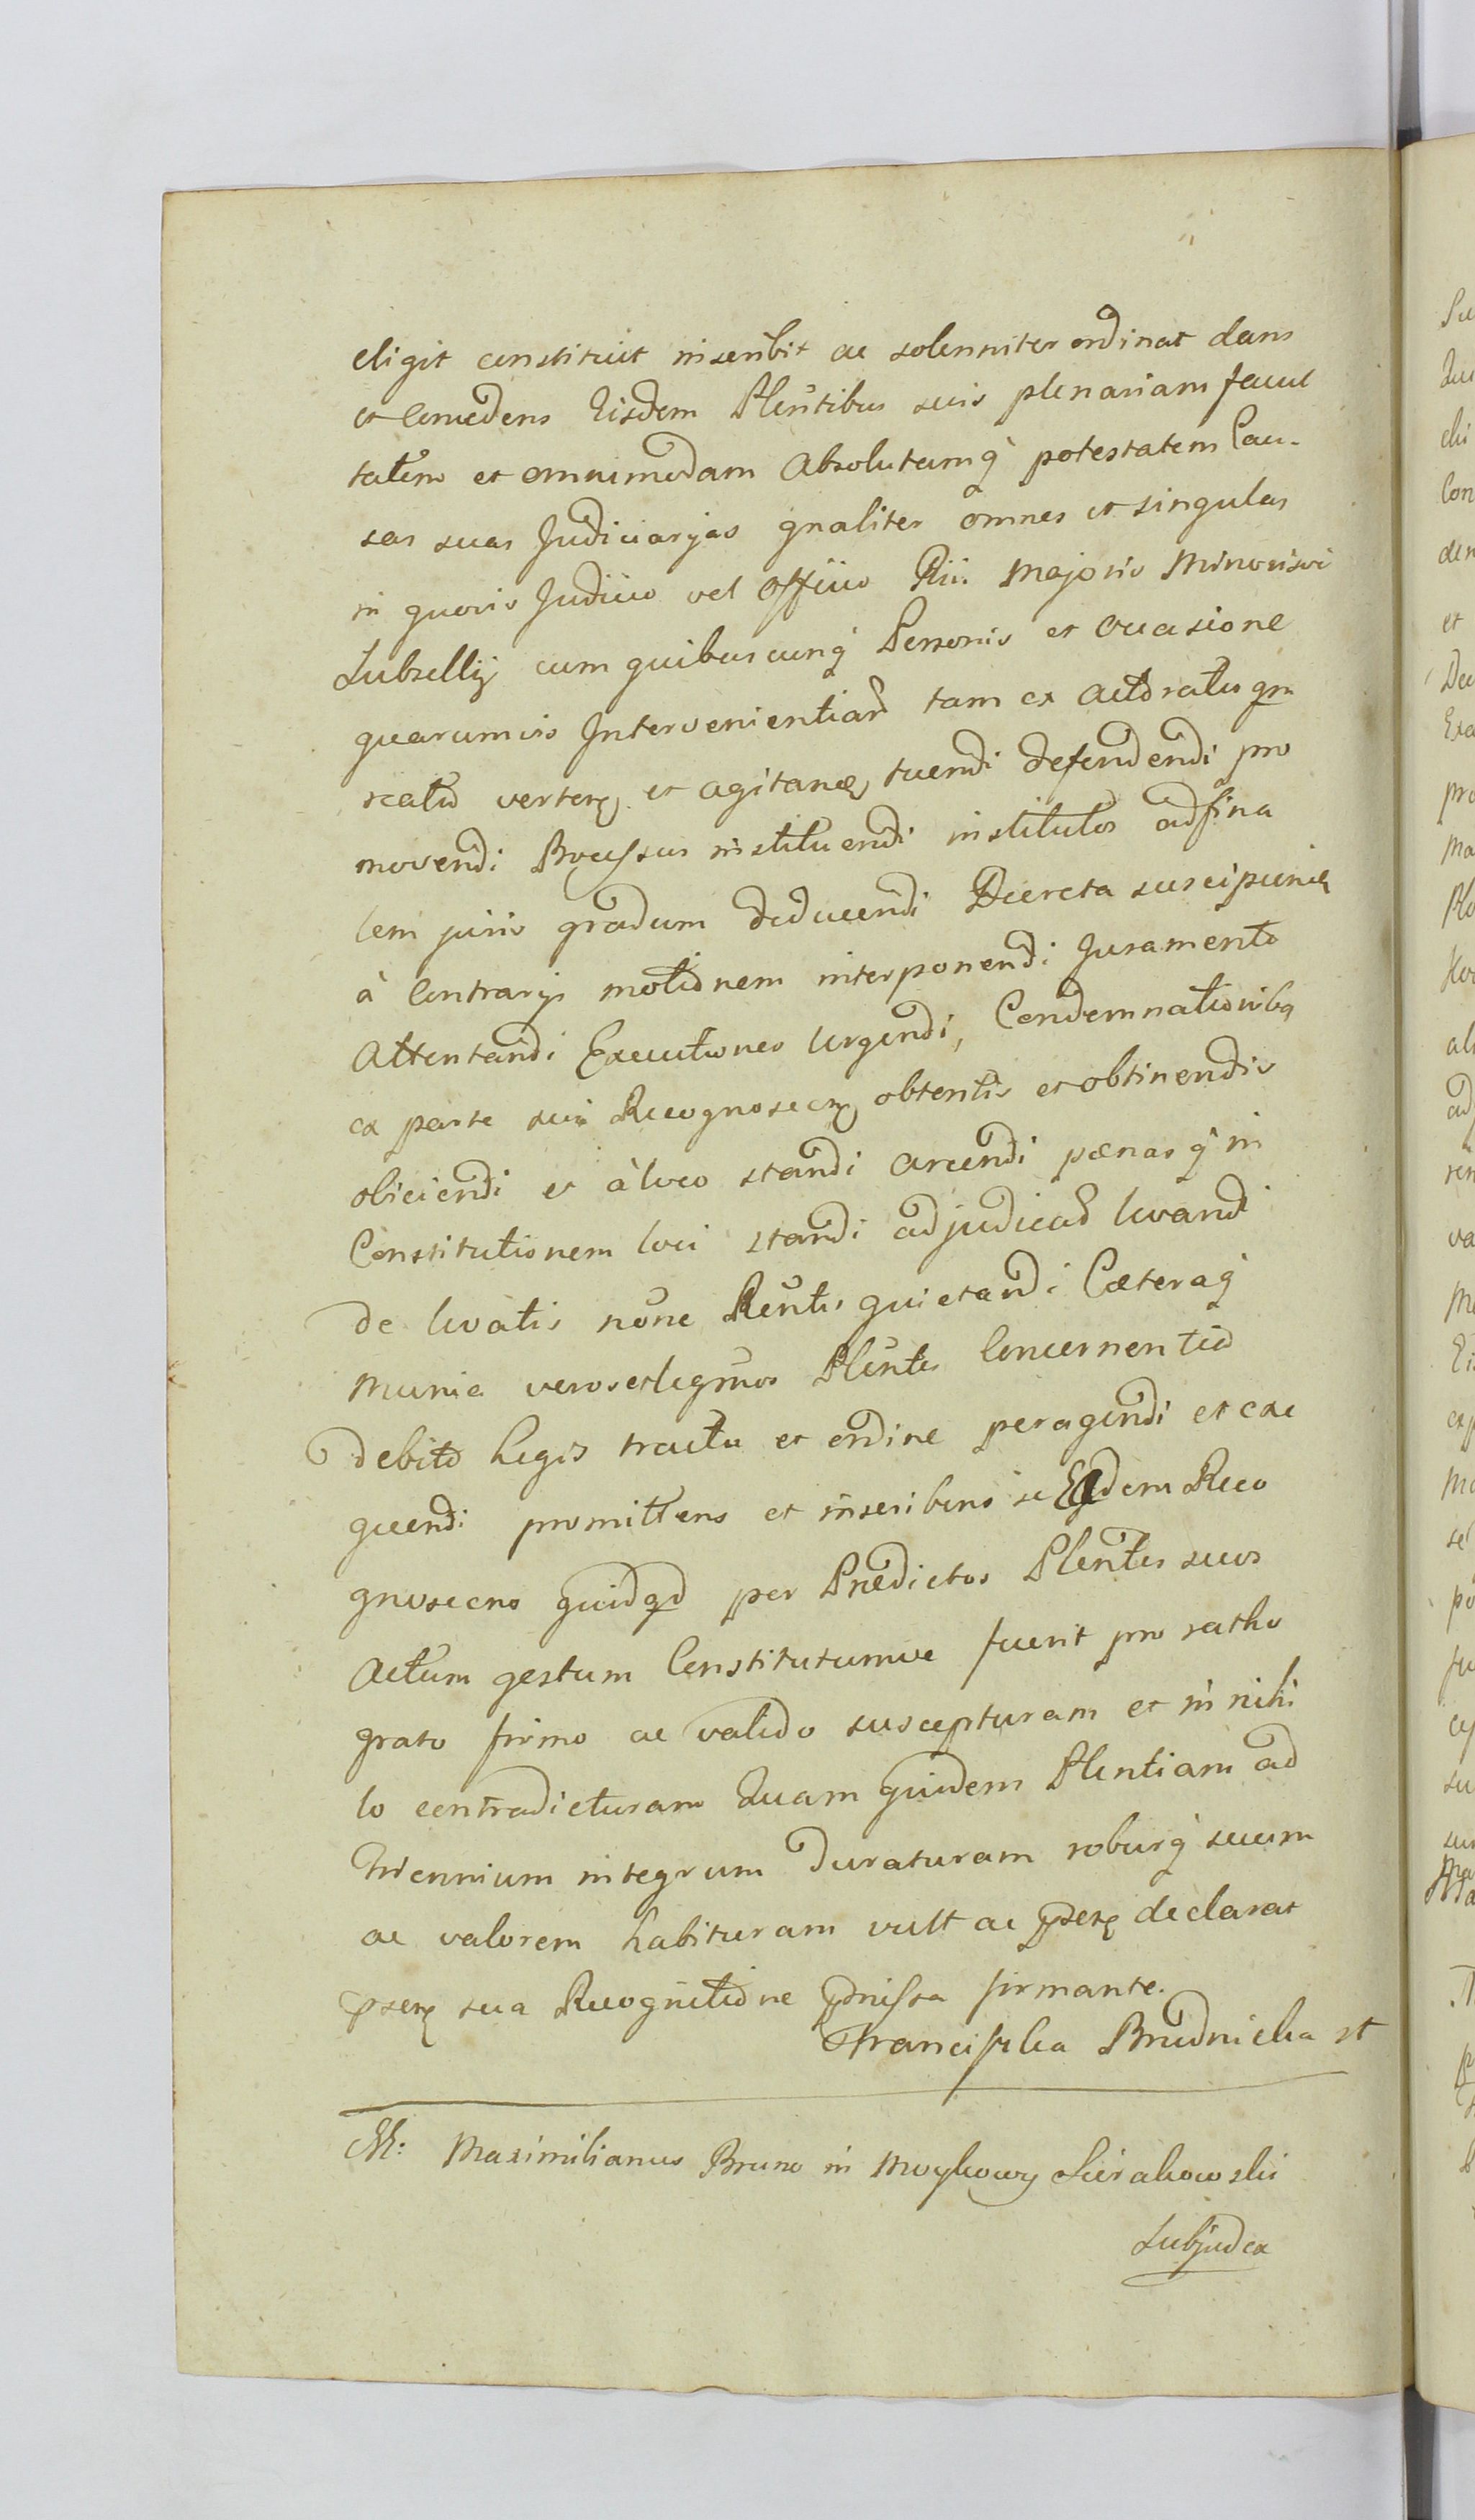 eligit constituit inscribit ac solenniter ordinat dans
et Concedens Eisdem Plentibus suis plenariam facul
tatem et omnimodam Absolutamq potestatem Cau-
sas suas Judiciarjas gnaliter omnes et singulas
in quovis Judicio vel Officio Rii. Majoris Minorisvi
Subsellij cum quibuscunq Personis et Occasione
quarumvis Intervenientiar tam ex Actoratu qm
reatu verten et agitan tuendi defendendi pro
movendi Processus instituendi institutos ad fina
lem juris gradum deducendi Decreta suscipiendi
à Contrarijs motionem interponendi Juramento
Attentandi Executiones Urgendi, Condemnationibq
ex parte sui Recognoscen obtentis et obtinendis
obiiciendi et à loco standi arcendi pænasq in
Constitutionem loci standi adjudicad levandi
de levatis nõne Rentis quietandi Cæteraq
munia veros et legmos Plentes Concernentia
debito Legis tractu et ordine peragendi et exe
quendi promittens et inscribens se Eadem Reco
gnoscens quidqd per Prædictos Plentes suos
Actum gestum Constitutumve fuerit pro ratho
grato firmo ac valido suscepturam et in nihi
lo contradicturam Quam quidem Plentiam ad
Triennium integrum duraturam roburq suum
ac valorem habituram vult ac psen declarat
psen sua Recognitione pmissa firmante.
Franciszka Brudnicka st
M: Maximilianus Bruno in Moykowy Sierakowski
Subjudex